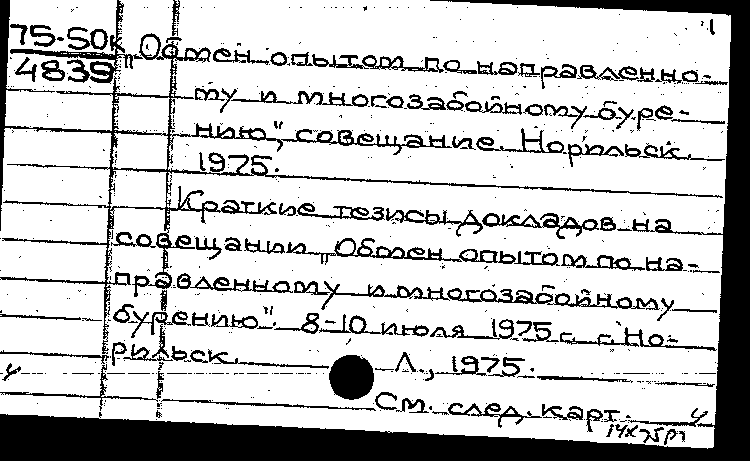 75-50к
4839
„Обмен опытом по направленно-
му и многозабойному буре-
нию", совещание. Норильск.
1975.
Краткие тезисы докладов на
совещании „Обмен опытом по на-
правленному и многозабойному
бурению". 8-10 июля 1975 г. г. Но-
рильск.
Л., 1975.
См. след. карт.